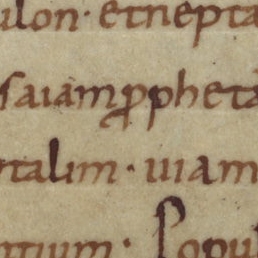 ulon · et nepta
saiam ꝓpheta
talim · uiam
ntium · Popul